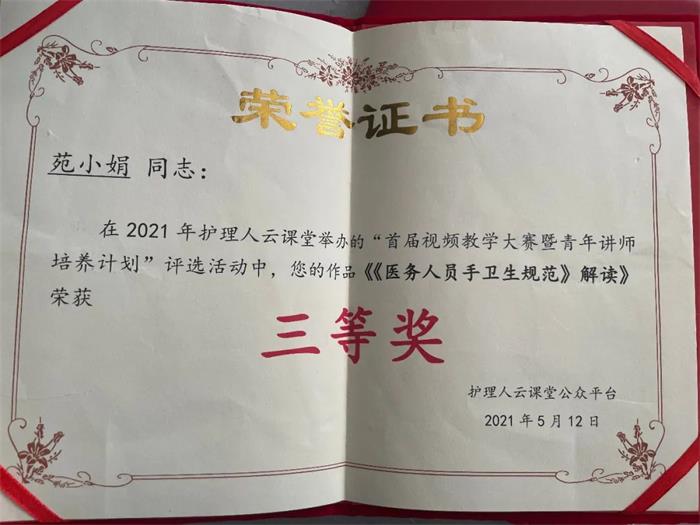 荣誉证书
苑小娟 同志：
在 2021 年护理人云课堂举办的“首届视频教学大赛暨青年讲师
培养计划”评选活动中，您的作品《《医务人员手卫生规范》解读》
荣获
三等奖
护理人云课堂公众平台
2021 年 5 月 12 日